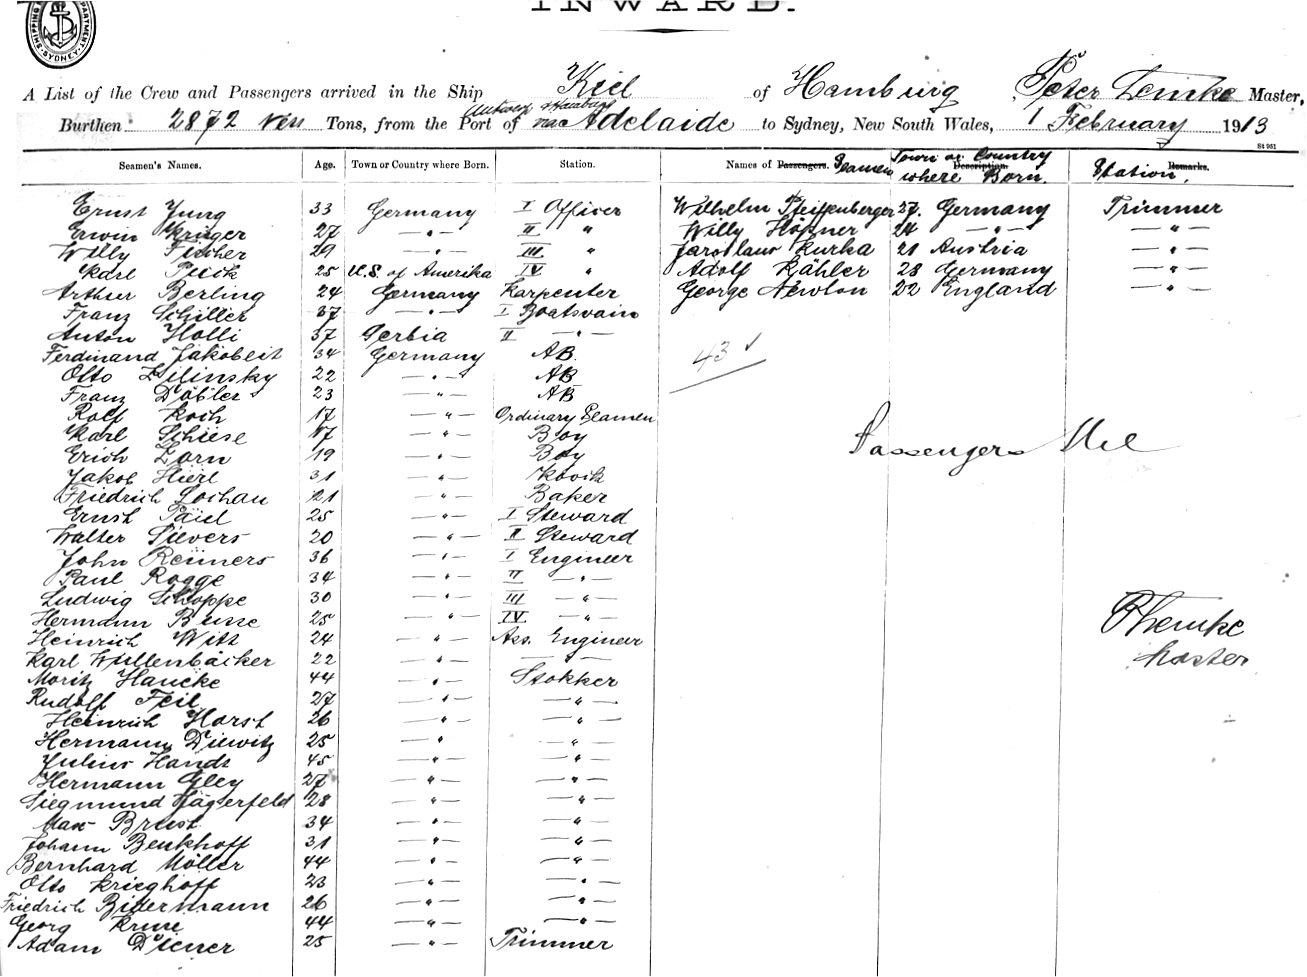 INWARD.
SHIPPING DEPARTMENT SYDNEY
A List of the Crew and Passengers arrived in the Ship Kiel of Hamburg, Peter Lemke Master,
Antwerp & Hamburg
Burthen 2872 Tons, from the Port of via Adelaide to Sydney, New South Wales, 1 February 1913
St 951
Seamen's Names. Age. Town or Country where Born. Station. Names of Passengers. Seamen Description. Town or Country where Born. Remarks. Station.
Ernst Jung 33 Germany I Officer Wilhelm Pfeiffenberger 27. Germany Trimmer
Erwin Krüger 27 —"— II " Willy Höpner 24 —"— —"—
Willy Fischer 29 —"— III " Jaroslaw Kurka 21 Austria —"—
Karl 25 U.S. of Amerika IV " Adolf Kähler 28 Germany —"—
Arthur Berling 24 Germany Karpenter George Newton 22 England —"—
Franz Schiller 37 —"— I Boatsvain
Anton Holli 37 Serbia II —"—
Ferdinand Jakobeit 34 Germany AB.
43 ✓
Otto Zilinsky 22 —"— AB
Franz Döbler 23 —"— AB
Rolf Koch 17 —"— Ordinary Seamen
Karl Schiese 17 —"— Boy
Passengers Nil
Erich Zorn 19 —"— Boy
Jakob Hierl 31 —"— Koock
Friedrich Lochau 21 —"— Baker
Ernst 25 —"— I Steward
Walter Sievers 20 —"— II Steward
John Reimers 36 —"— I Engineer
Paul Rogge 34 —"— II —"—
Ludwig Schoppe 30 —"— III —"—
Hermann Busse 25 —"— IV —"—
PLemke
Heinrich Witt 24 —"— Ass. Engineer
Karl Wüllenbäcker 22 —"— —"—
Master
Moritz Haucke 44 —"— Stokker
Rudolf Feil 27 —"— —"—
Heinrich Horst 26 —"— —"—
Hermann Diewitz 25 —"— —"—
Julius Handt 45 —"— —"—
Hermann Gley 27 —"— —"—
Siegmund Jägerfeld 28 —"— —"—
Max Brust 34 —"— —"—
Johann Benkhoff 31 —"— —"—
Bernhard Möller 44 —"— —"—
Otto Krieghoff 23 —"— —"—
Friedrich Bidermann 26 —"— —"—
Georg Kruse 44 —"— —"—
Adam Diener 25 —"— Trimmer